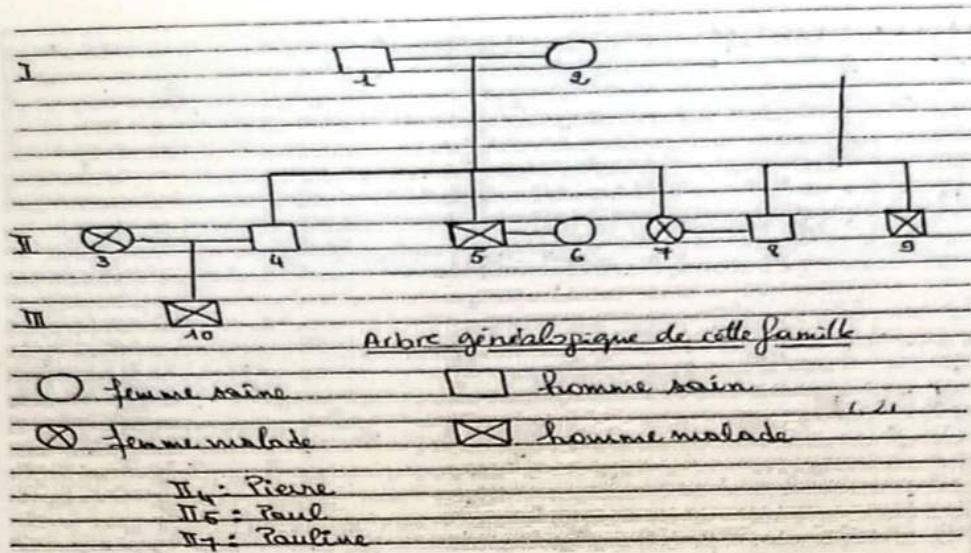 I
1
2
II
3
4
5
6
7
8
9
III
10
Arbre généalogique de cette famille
femme saine
homme sain
femme malade
homme malade
II4 : Pierre
II5 : Paul
II7 : Pauline